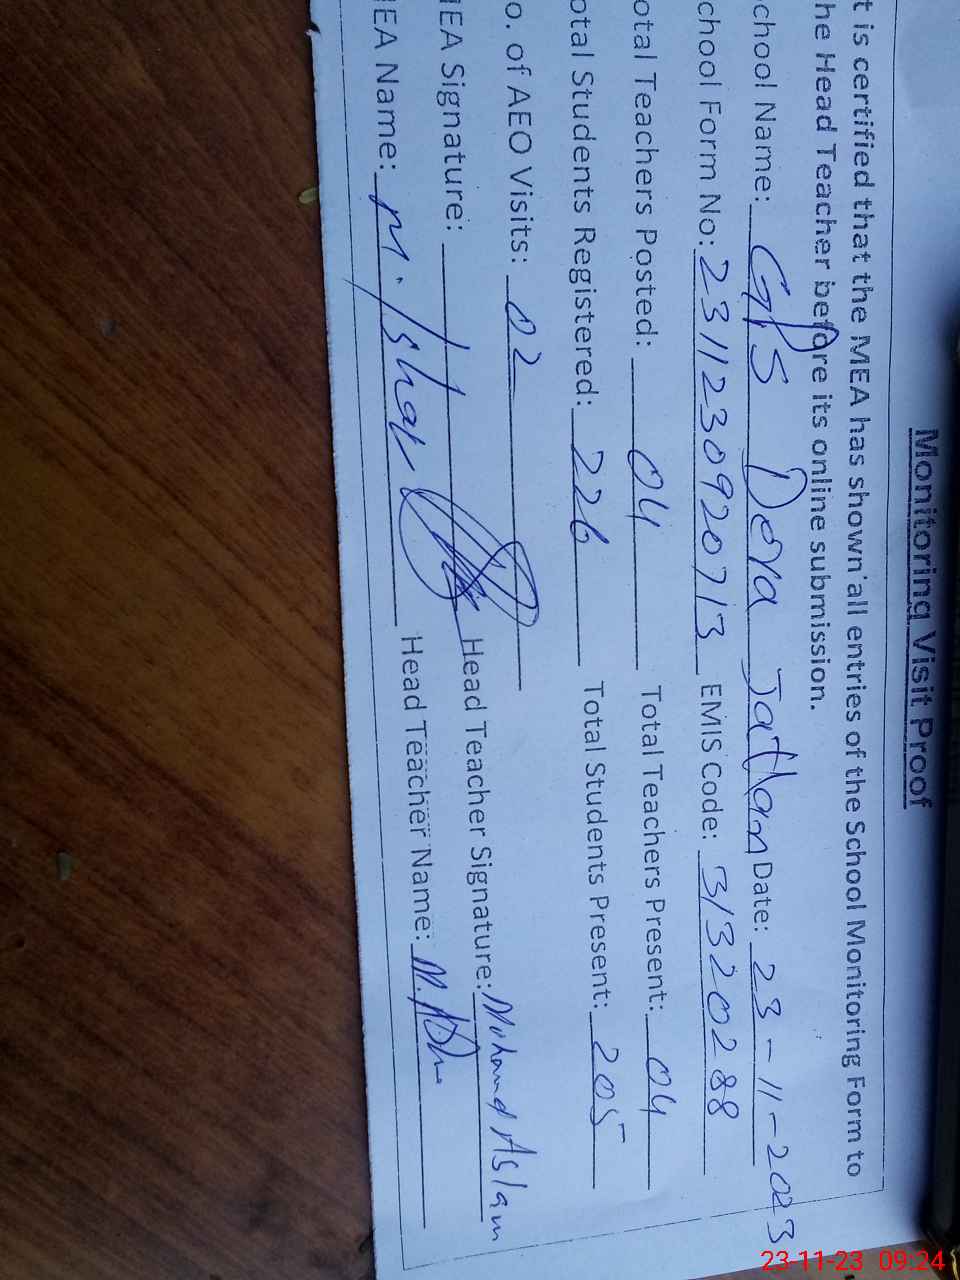 Monitoring Visit Proof
t is certified that the MEA has shown all entries of the School Monitoring Form to
he Head Teacher before its online submission.
chool Name: GPS Dera Jatlan Date: 23-11-2023
chool Form No: 2311230920713 EMIS Code: 31320288
otal Teachers Posted: 04 Total Teachers Present: 04
otal Students Registered: 226 Total Students Present: 205
o. of AEO Visits: 02
IEA Signature: Head Teacher Signature: Mohamd Aslam
IEA Name: M. Ishaq Head Teacher Name: M.
23-11-23 09:24